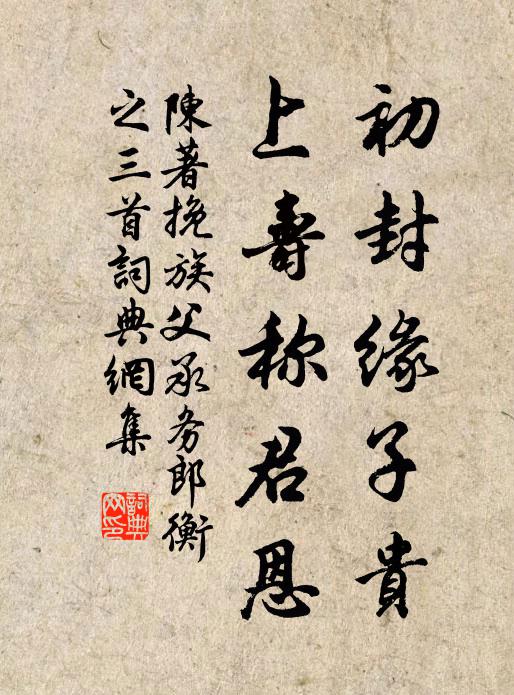 初封緣子貴
上壽称君恩
陳著挽族父承务郎衡
之三首詞典網集
詞典网印